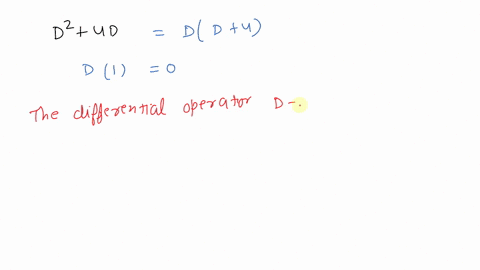 D² + 4D = D( D + 4)
D (1) = 0
The differential operator D -